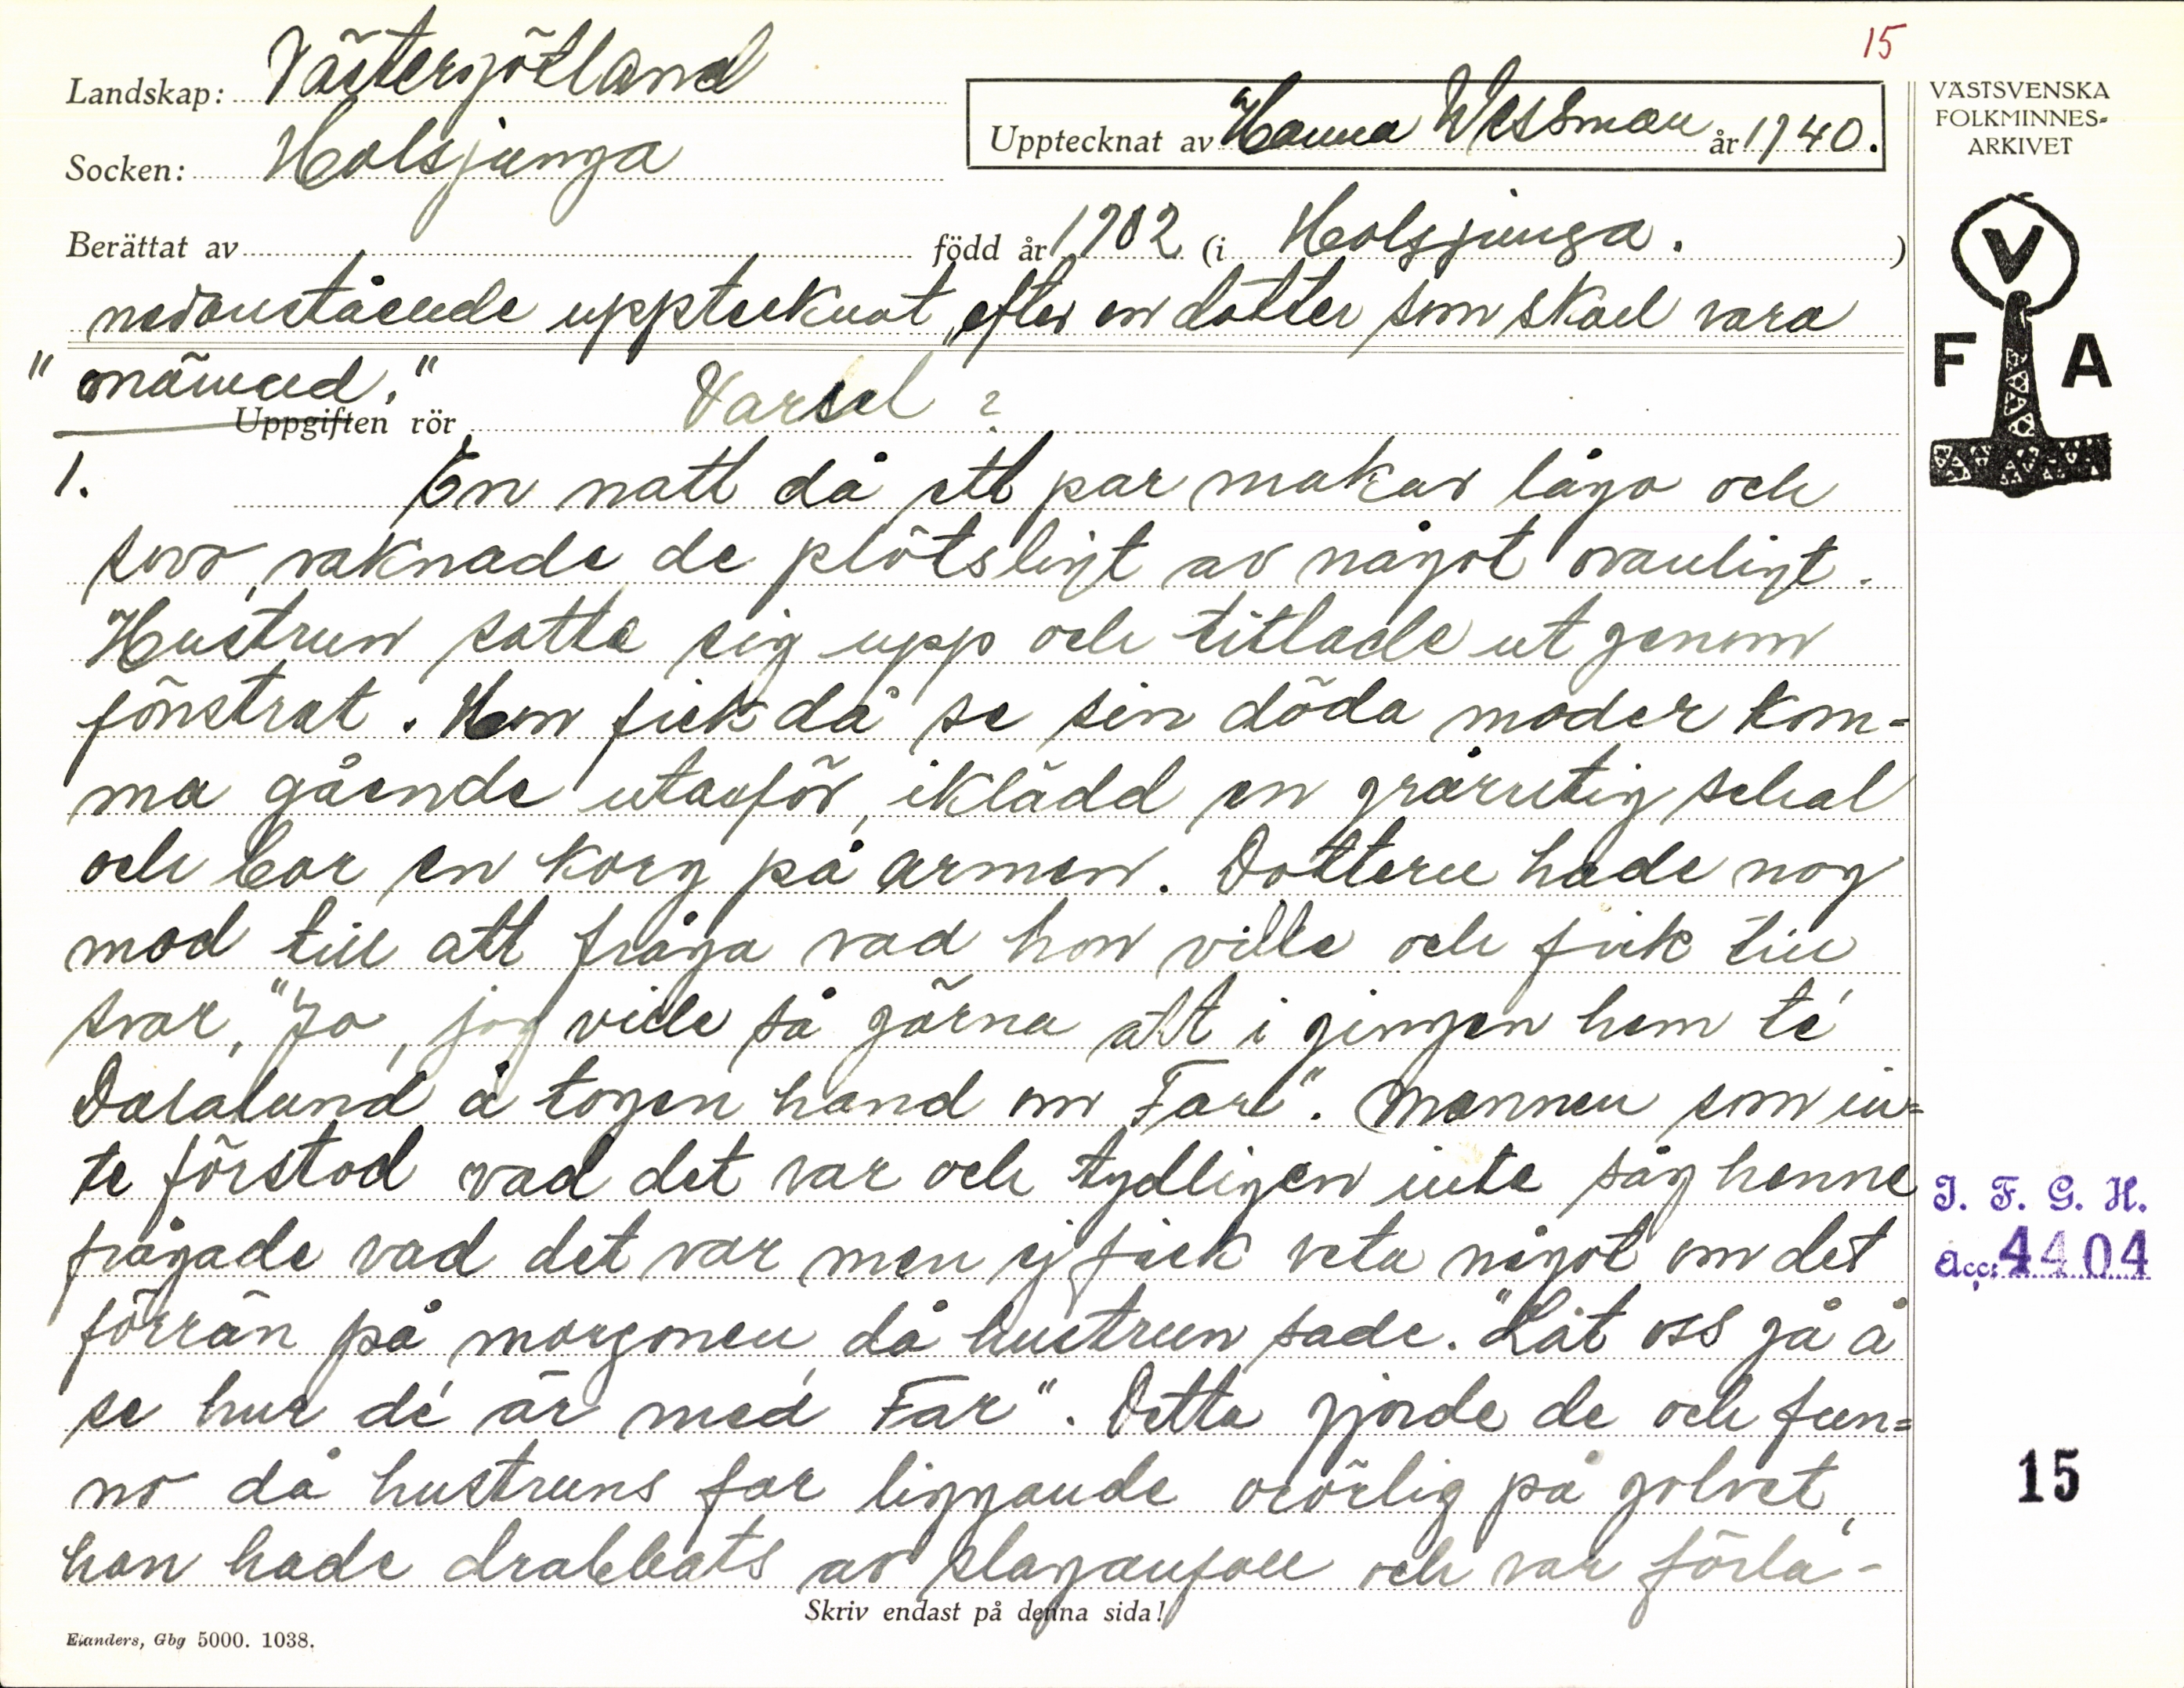 15
Landskap: Västergötland
Socken: Holsjunga
Upptecknat av Hanna Wessman år 1940.
Berättat av född år 1902 (i Holsjunga. )
nedanstående upptecknat „efter en dotter som skall vara
"onämnd."
Uppgiften rör Varsel ?
1. En natt då ett par makar lågo och
sovo, vaknade de plötsligt av något ovanligt.
Hustrun satte sig upp och tittade ut genom
fönstret. Hon fick då se sin döda moder kom-
ma gående utanför, iklädd en grårutig schal
och bar en korg på armen. Dottern hade nog
mod till att fråga vad hon ville och fick till
svar, "Jo, jag ville så gärna att i gingen hem té
Dalalund å togen hand om Far". Mannen som in-
te förstod vad det var och tydligen inte såg henne
frågade vad det var men ej fick veta något om det
förrän på morgonen, då hustrun sade. "Låt oss gå å
se hur dé är med Far". Detta gjorde de och fun-
no då hustruns far liggande orörlig på golvet,
han hade drabbats av slaganfall och var förla-
Skriv endast på denna sida!
Elanders, Gbg 5000. 1038.
VÄSTSVENSKA
FOLKMINNES-
ARKIVET
V
F A
I. F. G. H.
Acc. 4404
15